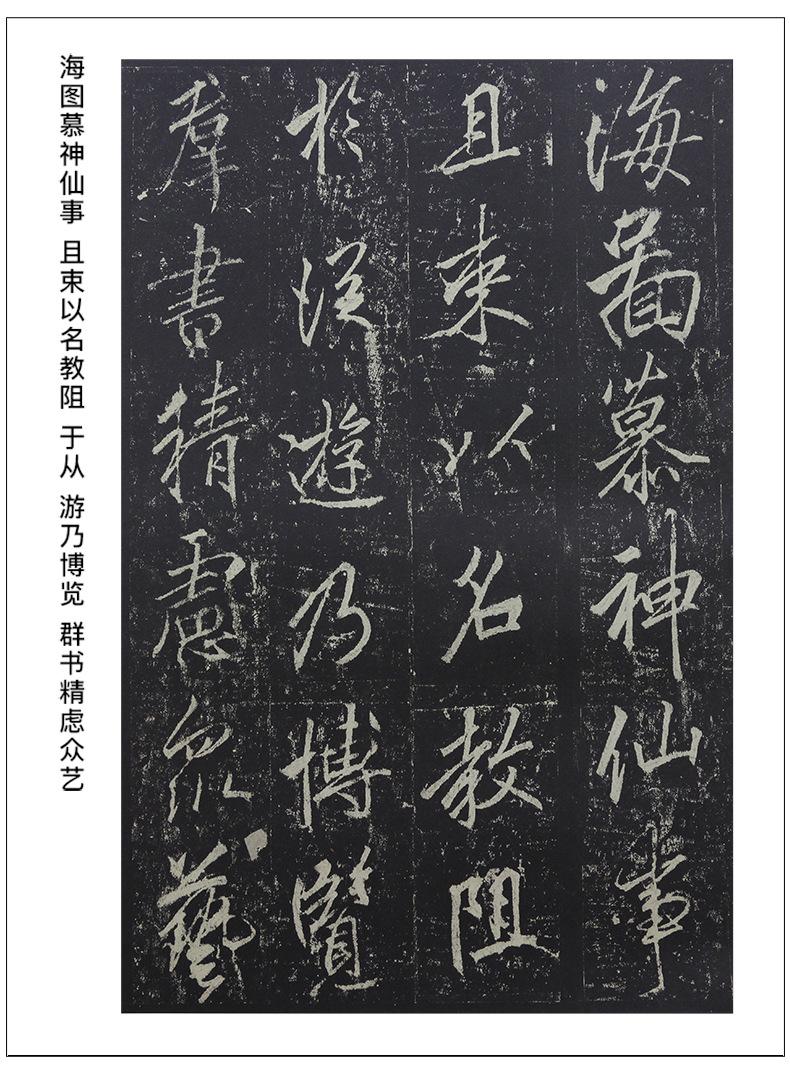 海啚慕神仙事
且束以名教阻
於從遊乃博覽
羣書精慮眾藝
海图慕神仙事 且束以名教阻 于从 游乃博览 群书精虑众艺